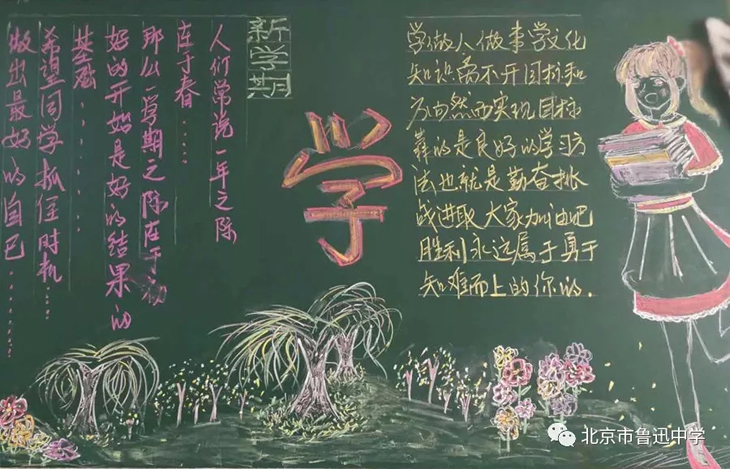 新学期
人们常说一年之际
在于春....
那么一学期之际在于初
好的开始是好的结果的
基础....
希望同学抓住时机......
做出最好的自己......
学
学做人做事学文化
知识离不开目标和
方向然而实现目标
靠的是良好的学习方
法也就是勤奋挑
战进取大家加油吧
胜利永远属于勇于
知难而上的你的.
北京市鲁迅中学